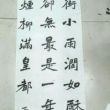 街小雨潤如酥
却無最是一年
煙柳滿皇都